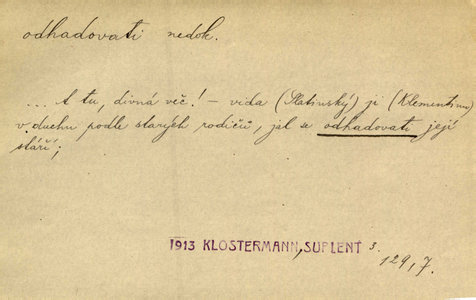 odhadovati nedok.
... A tu, divná věc! – vida (Slatinský) ji (Klementinu)
v duchu podle starých rodičů, jal se odhadovati její
stáří;
1913 KLOSTERMANN, SUPLENT 3.
129,7.